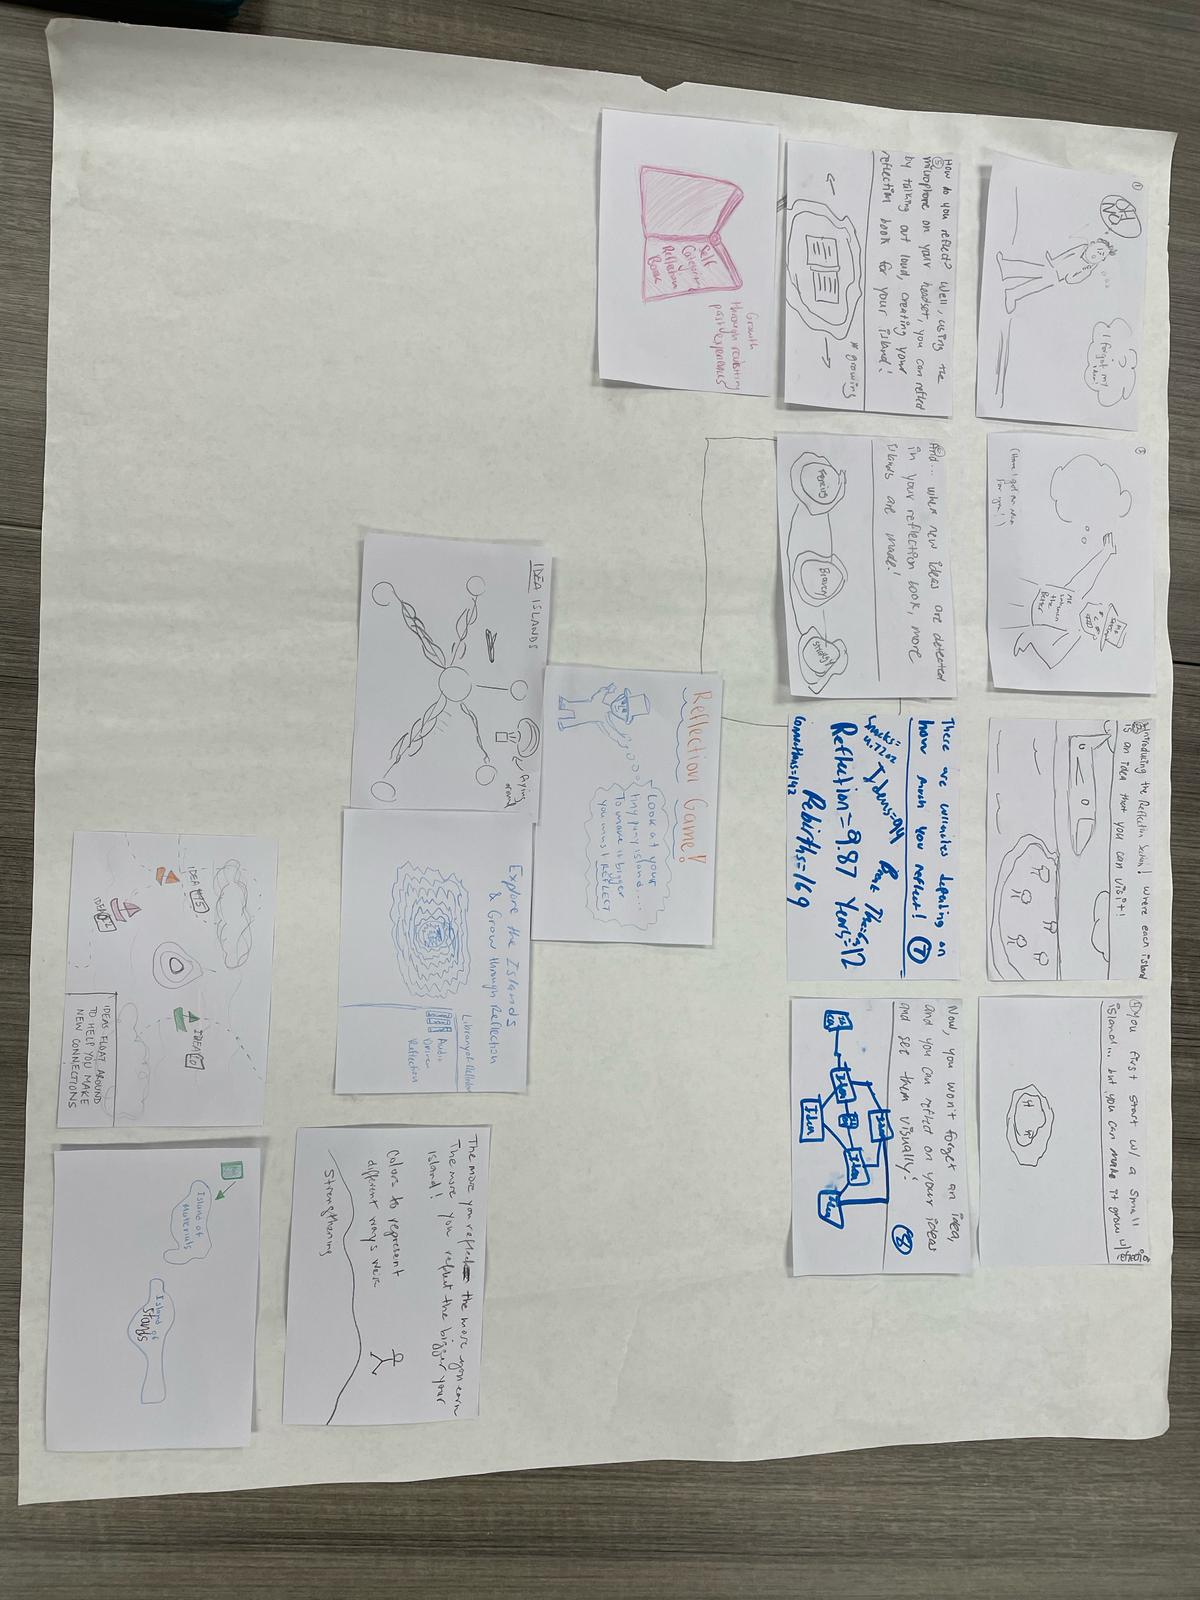 ①
OH NO!
I forgot my idea!
②
Mr
Salesman
Mr
Salesman
the
Better
for you!)
③
Introducing the Reflection Section! Where each island
is an idea that you can visit!
④ You first start w/ a small
island... but you can make it grow w/
reflection
⑤
How do you reflect? Well, using the
microphone on your headset, you can reflect
by talking out loud, creating your
reflection book for your island!
* growing
⑥
And... when new ideas are detected
in your reflection book, more
islands are made!
Fencing
Bravery
Strategy
There are currencies depending on
how much you reflect! ⑦
Snacks=
4.72oz
Ideas=94
Reflection=9.87
Years=12
Rebirths=169
Connections=142
Now, you won't forget an idea,
and you can reflect on your ideas
and see them visually!
⑧
Idea
Idea
Idea
Idea
Idea
Idea
Idea
Growth
through revisiting
past experiences
Self
Reflection
Book
Reflection Game!
Look at your
tiny puny island....
To make it bigger
you must REFLECT
IDEA ISLANDS
flying
around
Explore the Islands
& Grow through Reflection
Library of Reflection
Audio
Driven
Reflection
The more you reflect the more you earn
The more you reflect the bigger your
island!
Colors to represent
different ways we're
Strengthening
IDEA #95
IDEA 10
IDEA
IDEAS FLOAT AROUND
TO HELP YOU MAKE
NEW CONNECTIONS
Island of
Materials
Island of
Stands